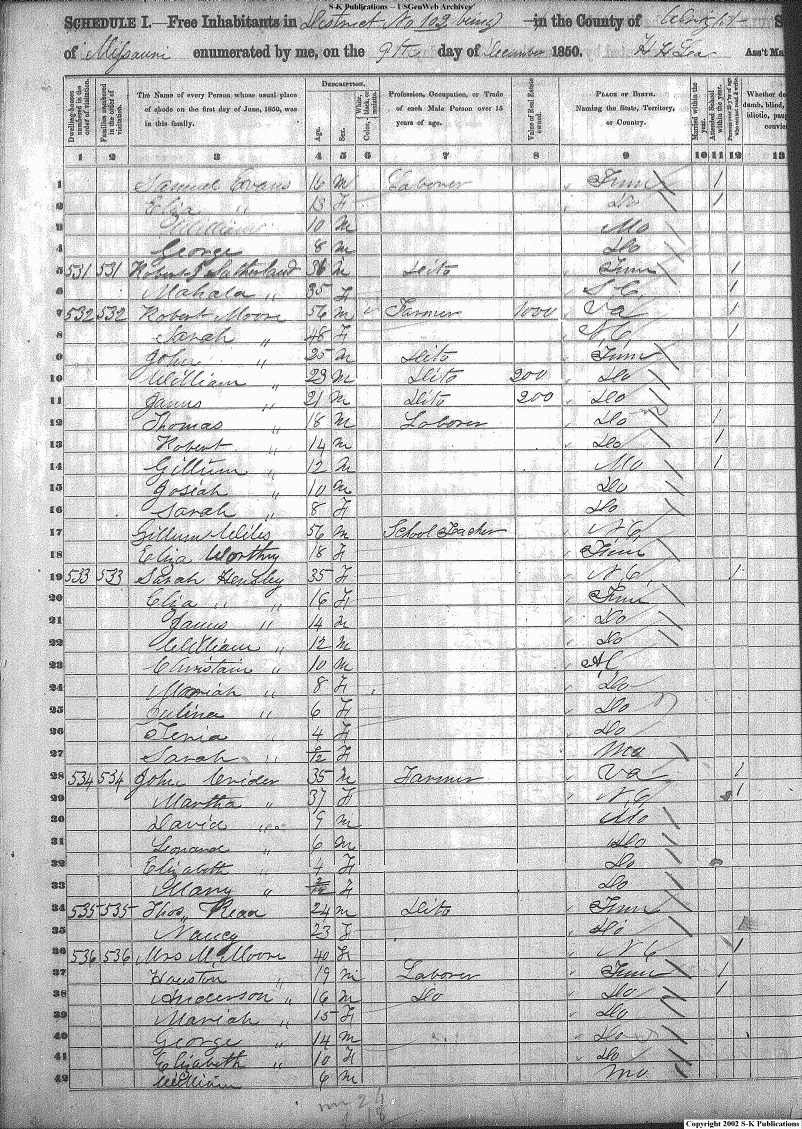 S-K Publications -- USGenWeb Archives
SCHEDULE I.—Free Inhabitants in District No 103 being in the County of Wright S
of Missouri enumerated by me, on the 9th day of December 1850. Ass't Ma
Dwelling-houses numbered in the order of visitation. Families numbered in the order of visitation. The Name of every Person whose usual place of abode on the first day of June, 1850, was in this family. DESCRIPTION. Age. Sex. Color, White, black, or mulatto. Profession, Occupation, or Trade of each Male Person over 15 years of age. Value of Real Estate owned. PLACE OF BIRTH. Naming the State, Territory, or Country. Married within the year. Attended School within the year. Persons over 20 y'rs of age who cannot read & write. Whether de dumb, blind, idiotic, pau convic
1 2 3 4 5 6 7 8 9 10 11 12 13
1 Samuel Evans 16 M Laborer Tenn /
2 Eliza " 13 F Do /
3 William 10 M Mo
4 George 8 M Do
5 531 531 Robert J Sutherland 36 M Dito Tenn /
6 Mahala " 35 F S C /
7 532 532 Robert Moore 56 M Farmer 1000 Va /
8 Sarah " 48 F N C /
9 John " 25 M Dito Tenn
10 William " 23 M Dito 200 Do
11 James " 21 M Dito 200 Do
12 Thomas " 18 M Laborer Do /
13 Robert " 14 M Do /
14 Gillum " 12 M Mo /
15 Josiah " 10 M Do
16 Sarah " 8 F Do
17 Gillum Wilis 56 M School Teacher N C
18 Eliza Worthy 18 F Tenn
19 533 533 Sarah Hensley 35 F N C /
20 Eliza " " 16 F Tenn
21 James " 14 M Do
22 William " 12 M Do
23 Christain " 10 M
24 Mariah " 8 F Do
25 " 6 F Do
26 " 4 F Do
27 Sarah " /12 F Mo
28 534 534 John Crider 35 M Farmer Va /
29 Martha " 37 F N C /
30 David " 9 M Mo
31 " 6 M Do
32 Elizabeth " 4 F Do
33 Mary " /12 F Do
34 535 535 Thos 24 M Dito Tenn
35 Nancy 23 F Do
36 536 536 Mrs M. Moore 40 F N C /
37 Houston " 19 M Laborer Tenn /
38 Anderson " 16 M Do Do /
39 Mariah " 15 F Do
40 George " 14 M Do
41 Elizabeth " 10 F Do
42 William 6 M Mo
Copyright 2002 S-K Publications